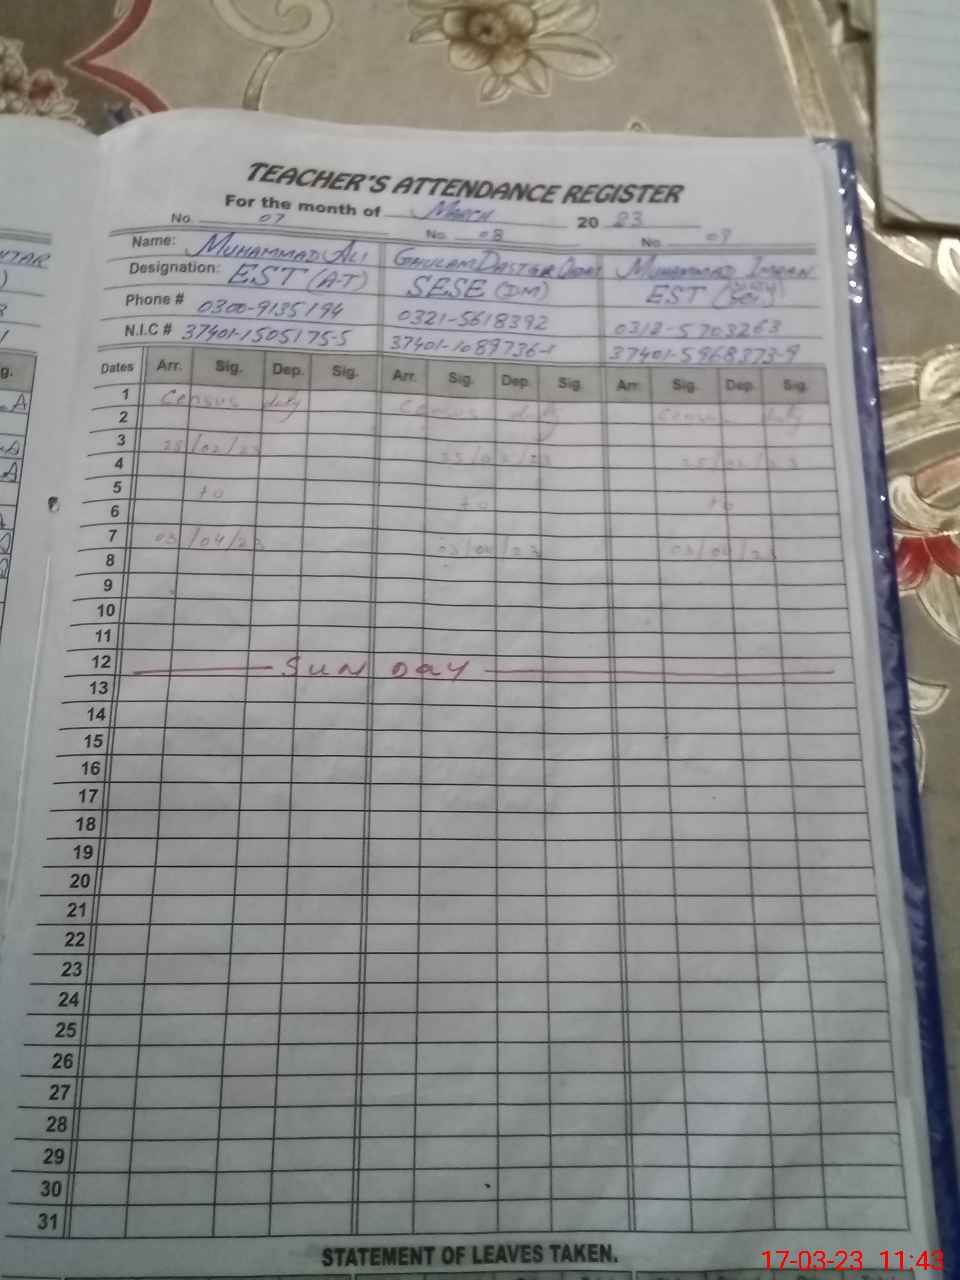 TEACHER'S ATTENDANCE REGISTER
For the month of March 2023
No. 07 No. 08 No. 09
Name: MUHAMMAD ALI GHULAM DASTGIR MUHAMMAD IMRAN
Designation: EST (AT) SESE (DM) EST (Sci)
Phone # 0300-9135194 0321-5618392 0312-5703263
N.I.C # 37401-1505175-5 37401-1089736-1 37401-5968373-9
Dates Arr. Sig. Dep. Sig. Arr. Sig. Dep. Sig. Arr. Sig. Dep. Sig.
1 Census duty Census duty Census duty
2
3 25/02/23
4 25/02/23 25/02/23
5 to
6 to to
7 03/04/23
8 03/04/23 03/04/23
9
10
11
12 SUNDAY
13
14
15
16
17
18
19
20
21
22
23
24
25
26
27
28
29
30
31
STATEMENT OF LEAVES TAKEN.
17-03-23 11:43